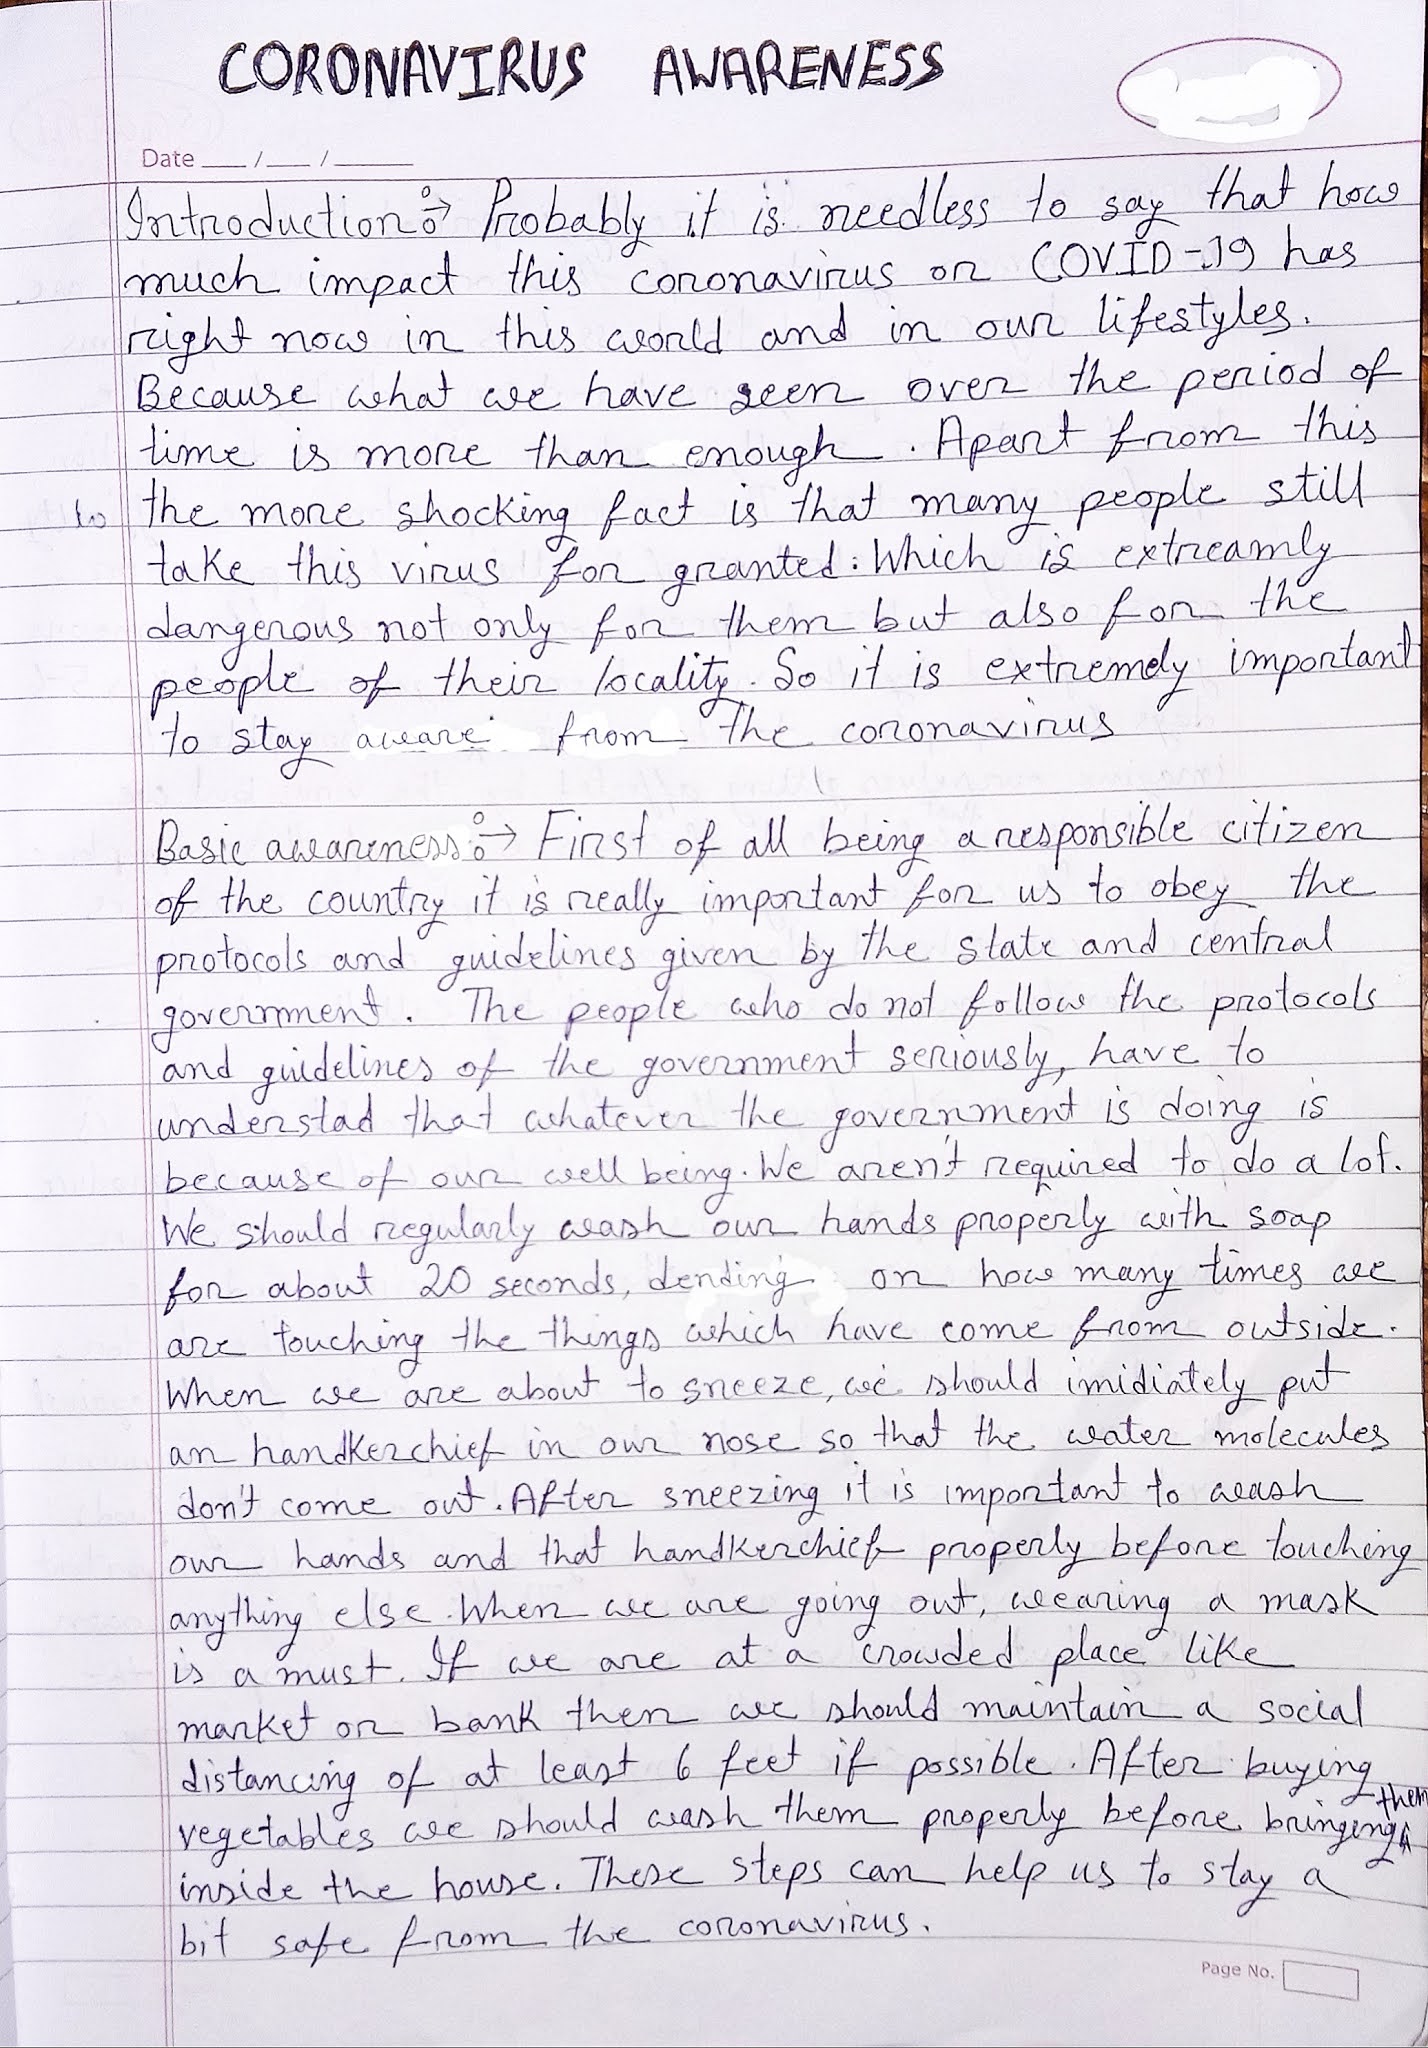 CORONAVIRUS AWARENESS
Date ___/___/_____
Introduction:→ Probably it is needless to say that how
much impact this coronavirus or COVID-19 has
right now in this world and in our lifestyles.
Because what we have seen over the period of
time is more than enough. Apart from this
the more shocking fact is that many people still
take this virus for granted. Which is extreamly
dangerous not only for them but also for the
people of their locality. So it is extremely important
to stay aware from the coronavirus
Basic awareness:→ First of all being a responsible citizen
of the country it is really important for us to obey the
protocols and guidelines given by the state and central
government. The people who do not follow the protocols
and guidelines of the government seriously, have to
understad that whatever the government is doing is
because of our well being. We aren't required to do a lot.
We should regularly wash our hands properly with soap
for about 20 seconds, dending on how many times we
are touching the things which have come from outside.
When we are about to sneeze, we should imidiately put
an handkerchief in our nose so that the water molecules
don't come out. After sneezing it is important to wash
our hands and that handkerchief properly before touching
anything else. When we are going out, wearing a mask
is a must. If we are at a crowded place like
market or bank then we should maintain a social
distancing of at least 6 feet if possible. After buying
vegetables we should wash them properly before bringing them
inside the house. These steps can help us to stay a
bit safe from the coronavirus.
Page No.